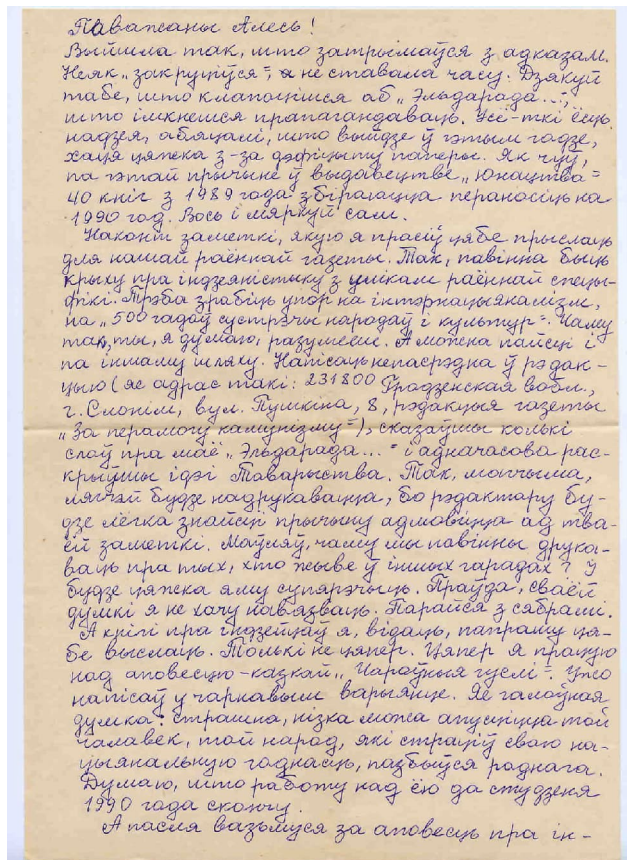 Паважаны Алесь!
Выйшла так, што затрымаўся з адказам.
Неяк „закруціўся“, а не ставала часу. Дзякуй
табе, што клапоцішся аб „Эльдарада...“,
што імкнешся прапагандаваць. Усё-ткі ёсць
надзея, абяцалі, што выйдзе ў гэтым годзе,
хаця цяжка з-за дэфіцыту паперы. Як чуў,
па гэтай прычыне ў выдавецтве „Юнацтва“
40 кніг з 1989 года збіраюцца пераносіць на
1990 год. Вось і мяркуй сам.
Наконт заметкі, якую я прасіў цябе прыслаць
для нашай раённай газеты. Так, павінна быць
крыху пра індзеяністыку з улікам раённай спецы-
фікі. Трэба зрабіць упор на інтэрнацыяналізм,
на „500 гадоў сустрэчы народаў і культур“. Чаму
так, ты, я думаю, разумееш. А можна пайсці і
па іншаму шляху. Напісаць непасрэдна ў рэдак-
цыю (яе адрас такі: 231800 Гродзенская вобл.,
г. Слонім, вул. Пушкіна, 8, рэдакцыя газеты
„За перамогу камунізму“), сказаўшы колькі
слоў пра маё „Эльдарада...“ і адначасова рас-
крыўшы ідэі Таварыства. Так, магчыма,
лягчэй будзе надрукавацца, бо рэдактару бу-
дзе лёгка знайсці прычыну адмовіцца ад тва-
ёй заметкі. Маўляў, чаму мы павінны друка-
ваць пра тых, хто жыве ў іншых гарадах? І
будзе цяжка яму супярэчыць. Праўда, сваёй
думкі я не хачу навязваць. Парайся з сябрамі.
А кнігі пра індзейцаў я, відаць, папрашу ця-
бе выслаць. Толькі не цяпер. Цяпер я працую
над аповесцю-казкай „Чароўныя гуслі“. Ужо
напісаў у чарнавым варыянце. Яе галоўная
думка: страшна, нізка можа апусціцца той
чалавек, той народ, які страціў сваю на-
цыянальную годнасць, пазбыўся роднага.
Думаю, што работу над ёю да студзеня
1990 года скончу.
А пасля вазьмуся за аповесць пра ін-